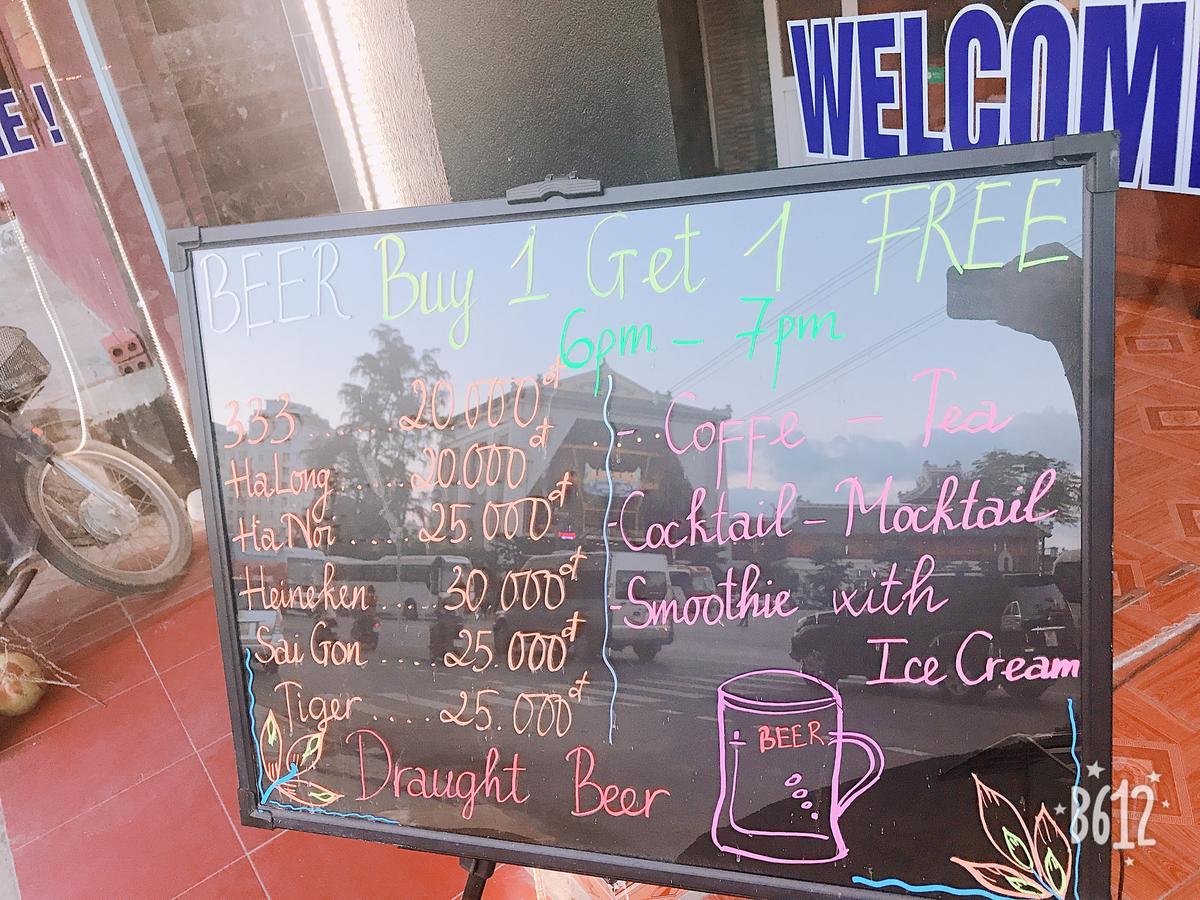 WELCOM
E!
BEER Buy 1 Get 1 FREE
6pm - 7pm
333 ...... 20.000đ
HaLong ..... 20.000đ
HaNoi ..... 25.000đ
Heineken .... 30.000đ
Sai Gon .... 25.000đ
Tiger .... 25.000đ
Draught Beer
- Coffe - Tea
- Cocktail - Mocktail
- Smoothie with
Ice Cream
BEER
8612